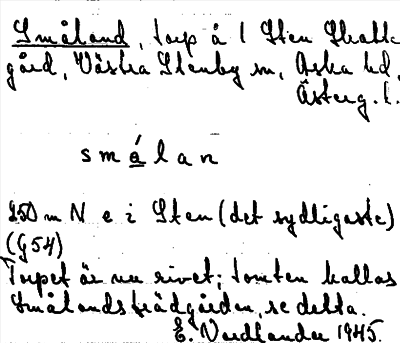 Småland, torp å 1 Sten Skatte
gård, Västra Stenby sn, Aska hd,
Österg. l.
små̱lan
250 m N e i Sten (det sydligaste)
(G54)
Torpet är nu rivet; tomten kallas
Smålandsträdgården, se detta.
E. Vardlander 1945.